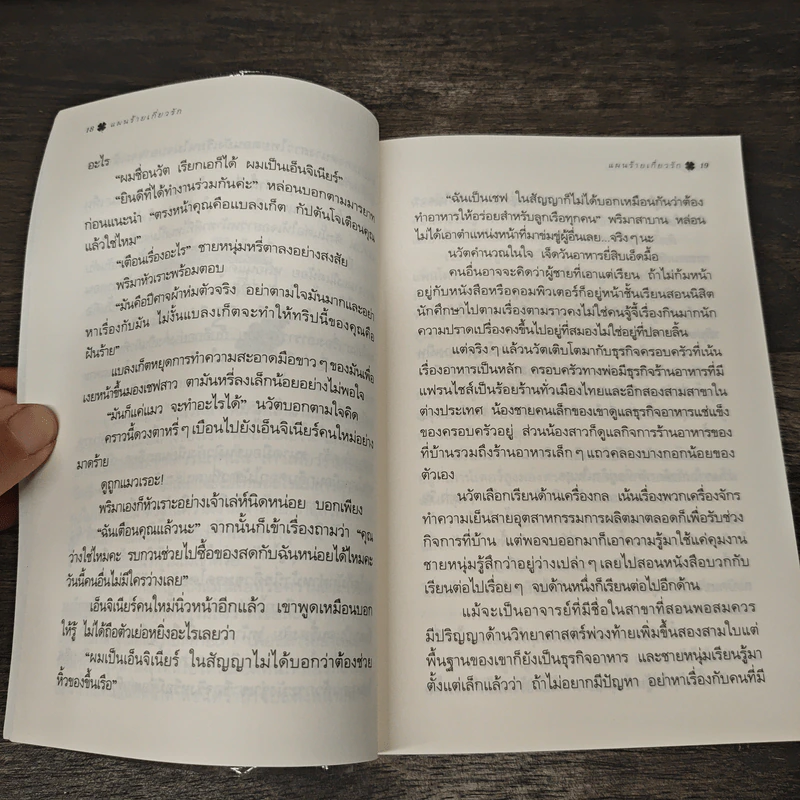 18 แผนร้ายเกี่ยวรัก
อะไร
“ผมชื่อนวัต เรียกเอก็ได้ ผมเป็นเอ็นจิเนียร์”
“ยินดีที่ได้ทำงานร่วมกันค่ะ” หล่อนบอกตามมารยาท
ก่อนแนะนำ “ตรงหน้าคุณคือแบลงเก็ต กัปตันโจเตือนคุณ
แล้วใช่ไหม”
“เตือนเรื่องอะไร” ชายหนุ่มหรี่ตาลงอย่างสงสัย
พริมาหัวเราะพร้อมตอบ
“มันคือปีศาจผ้าห่มตัวจริง อย่าตามใจมันมากและอย่า
หาเรื่องกับมัน ไม่งั้นแบลงเก็ตจะทำให้ทริปนี้ของคุณคือ
ฝันร้าย”
แบลงเก็ตหยุดการทำความสะอาดมือขาวๆ ของมันเพื่อ
เงยหน้าขึ้นมองเชฟสาว ตามันหรี่ลงเล็กน้อยอย่างไม่พอใจ
“มันก็แค่แมว จะทำอะไรได้” นวัตบอกตามใจคิด
คราวนี้ดวงตาหรี่ๆ เบือนไปยังเอ็นจิเนียร์คนใหม่อย่าง
มาดร้าย
ดูถูกแมวเรอะ!
พริมาเองก็หัวเราะอย่างเจ้าเล่ห์นิดหน่อย บอกเพียง
“ฉันเตือนคุณแล้วนะ” จากนั้นก็เข้าเรื่องถามว่า “คุณ
ว่างใช่ไหมคะ รบกวนช่วยไปซื้อของสดกับฉันหน่อยได้ไหมคะ
วันนี้คนอื่นไม่มีใครว่างเลย”
เอ็นจิเนียร์คนใหม่นิ่วหน้าอีกแล้ว เขาพูดเหมือนบอก
ให้รู้ ไม่ได้ถือตัวเย่อหยิ่งอะไรเลยว่า
“ผมเป็นเอ็นจิเนียร์ ในสัญญาไม่ได้บอกว่าต้องช่วย
หิ้วของขึ้นเรือ”
แผนร้ายเกี่ยวรัก 19
“ฉันเป็นเชฟ ในสัญญาก็ไม่ได้บอกเหมือนกันว่าต้อง
ทำอาหารให้อร่อยสำหรับลูกเรือทุกคน” พริมาสาบาน หล่อน
ไม่ได้เอาตำแหน่งหน้าที่มาข่มขู่ผู้อื่นเลย...จริงๆ นะ
นวัตคำนวณในใจ เจ็ดวันอาหารยี่สิบเอ็ดมื้อ
คนอื่นอาจจะคิดว่าผู้ชายที่เอาแต่เรียน ถ้าไม่ก้มหน้า
อยู่กับหนังสือหรือคอมพิวเตอร์ก็อยู่หน้าชั้นเรียนสอนนิสิต
นักศึกษาไปตามเรื่องตามราวคงไม่ใช่คนรู้จี้เรื่องกินมากนัก
ความปราดเปรื่องคงขึ้นไปอยู่ที่สมองไม่ใช่อยู่ที่ปลายลิ้น
แต่จริงๆ แล้วนวัตเติบโตมากับธุรกิจครอบครัวที่เน้น
เรื่องอาหารเป็นหลัก ครอบครัวทางพ่อมีธุรกิจร้านอาหารที่มี
แฟรนไชส์เป็นร้อยร้านทั่วเมืองไทยและอีกสองสามสาขาใน
ต่างประเทศ น้องชายคนเล็กของเขาดูแลธุรกิจอาหารแช่แข็ง
ของครอบครัวอยู่ ส่วนน้องสาวก็ดูแลกิจการร้านอาหารของ
ที่บ้านรวมถึงร้านอาหารเล็กๆ แถวคลองบางกอกน้อยของ
ตัวเอง
นวัตเลือกเรียนด้านเครื่องกล เน้นเรื่องพวกเครื่องจักร
ทำความเย็นสายอุตสาหกรรมการผลิตมาตลอดก็เพื่อรับช่วง
กิจการที่บ้าน แต่พอจบออกมาก็เอาความรู้มาใช้แค่คุมงาน
ชายหนุ่มรู้สึกว่าอยู่ว่างเปล่าๆ เลยไปสอนหนังสือบวกกับ
เรียนต่อไปเรื่อยๆ จบด้านหนึ่งก็เรียนต่อไปอีกด้าน
แม้จะเป็นอาจารย์ที่มีชื่อในสาขาที่สอนพอสมควร
มีปริญญาด้านวิทยาศาสตร์พ่วงท้ายเพิ่มขึ้นสองสามใบแต่
พื้นฐานของเขาก็ยังเป็นธุรกิจอาหาร และชายหนุ่มเรียนรู้มา
ตั้งแต่เล็กแล้วว่า ถ้าไม่อยากมีปัญหา อย่าหาเรื่องกับคนที่มี